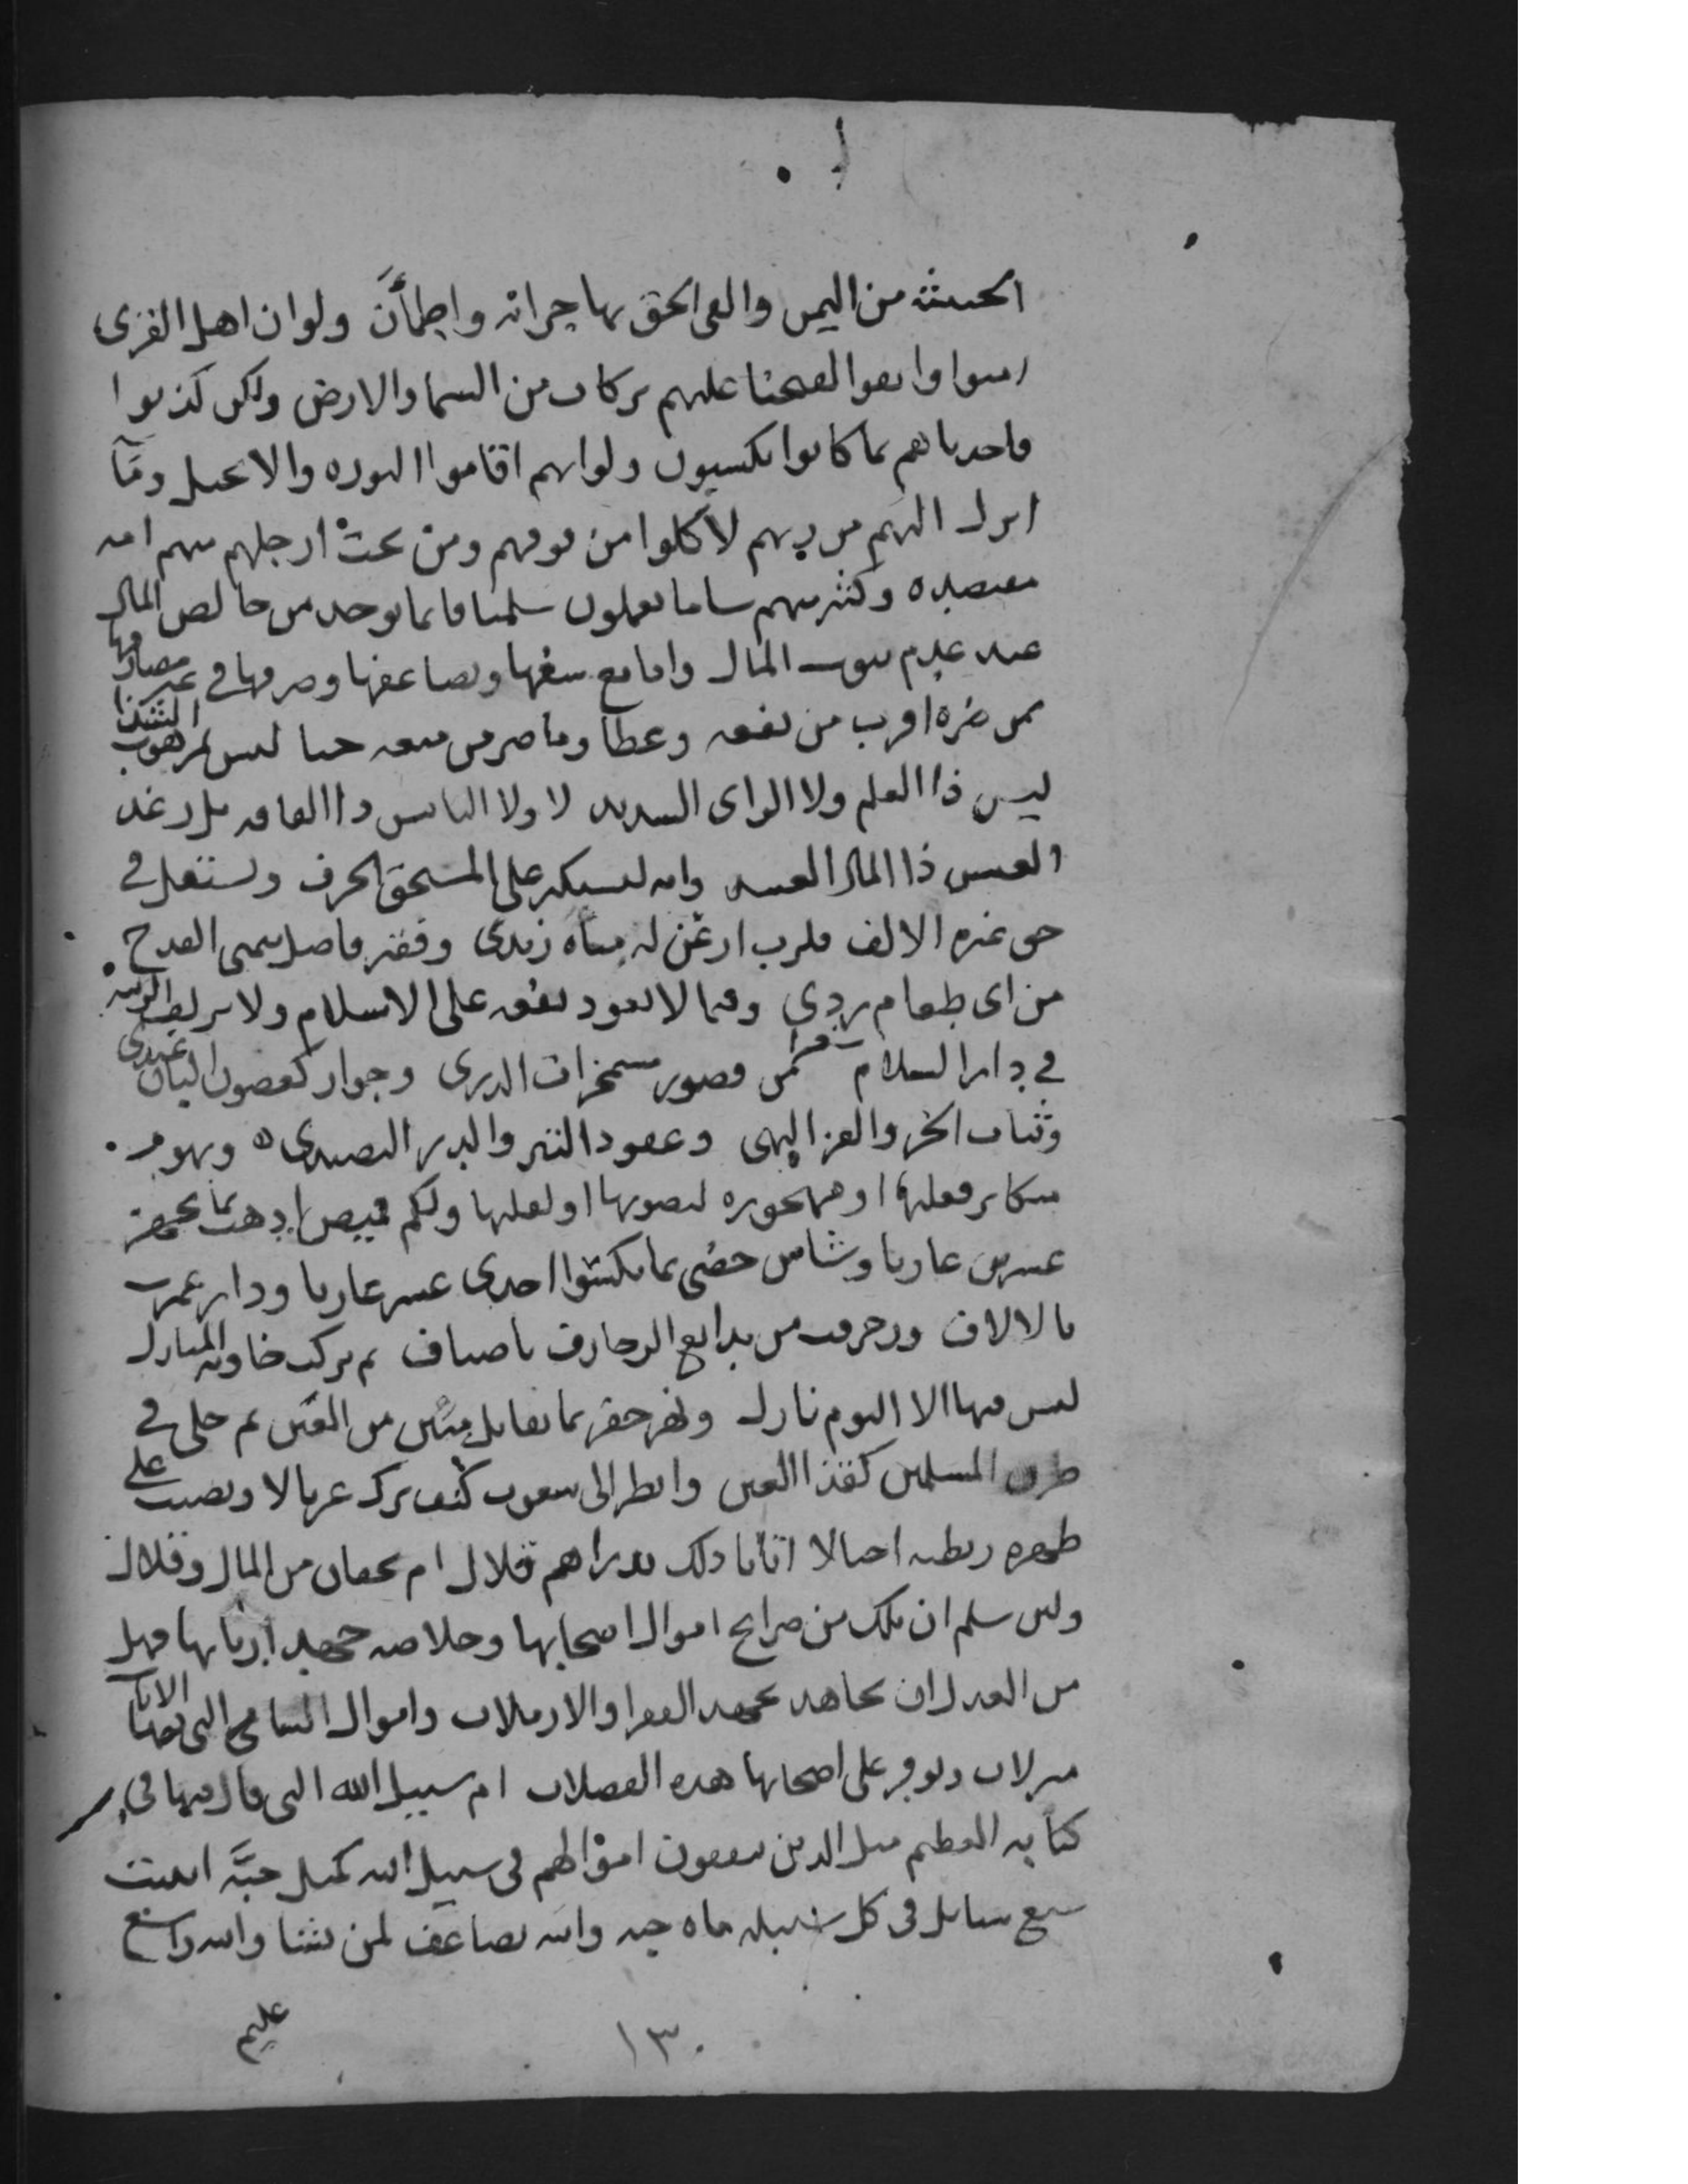 الحبشه من اليمن والقى الحق بها جرانه واطمأنَّ ولو ان اهل القرى
امنوا واتقوا لفتحنا عليهم بركات من السما والارض ولكن كذبوا
فاخذناهم بما كانوا يكسبون ولو انهم اقاموا التوره والانجيل ومآ
انزل اليهم من ربهم لأكلوا من فوقهم ومن تحت ارجلهم منهم امه
مقتصده وكثير منهم سا ما يعملون سلمنا فانما يوخذ من خالص المال
عند عدم بيوت المال واما مع سعها وتضاعفها وصرفها في غير مصارفها
لمن ضره اقرب من نفعه وعطا وما صر من منعه حبا ليس لمرهوب الشذا
ليس ذا العلم ولا الراى السديد لا ولا البايس ذا الفاقه بل رغد
العيش ذا المال العتيد وانه ليستكثر على المستحق الحرف ويستقل في
حق غيره الالف فلرب ارعن له مياه زبدى وفقير فاضل يمسى القدح
من اى طعام ردي وفيما لا يعود نفعه على الاسلام ولا
في دار السلام من قصور مسمخرات الذرى وجوار كغصون البان
وثياب الخز والقز البهى وعقود التبر والدر النضيدى ه وبهو
قميص اذهب بما يجهز
عشرين عاريا وشاش حضى بما يكسوا احدى عشر عاريا ودار عمرت
بالالاف وزخرفت من بدايع الزخارف باصناف ثم تركت خاويه المنازل
ليس فيها الا البوم نازل ونهر حفر بما يقابل مئين من العين ثم خلى في
طرق المسلمين كقذا العين وانظر الى يعقوب كيف ترك غربالا ونصبت على
ظهره احبالا اتانا ذلك بدراهم قلال ام بجفان من المال وقلال
ولئن سلم ان تلك من صرايح اموال اصحابها وخلاصه جهد اربابها فهل
من العدل ان يجاهد بجهد الفقرا والارملات واموال اليتامى التى فيها الايات
منزلات ويوفر على اصحابها هذه الفضلات ام سبيل الله التى قال فيها في
كتابه العظيم مثل الذين ينفقون اموالهم في سبيل الله كمثل حبَّه انبتت
سبع سنابل في كل سنبله مايه حبه والله يضاعف لمن يشا والله واسع
عليم
١٣٠